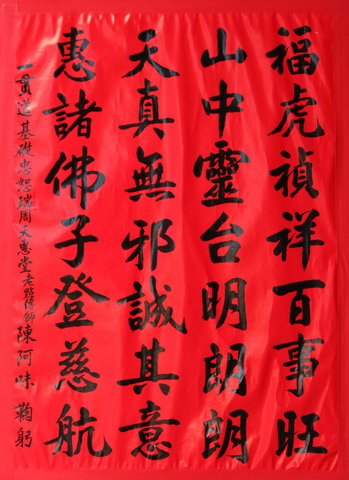 福虎禎祥百事旺
山中靈台明朗朗
天真無邪誠其意
惠諸佛子登慈航
一貫道基礎忠恕瑞周天惠堂老點傳師陳阿味 鞠躬